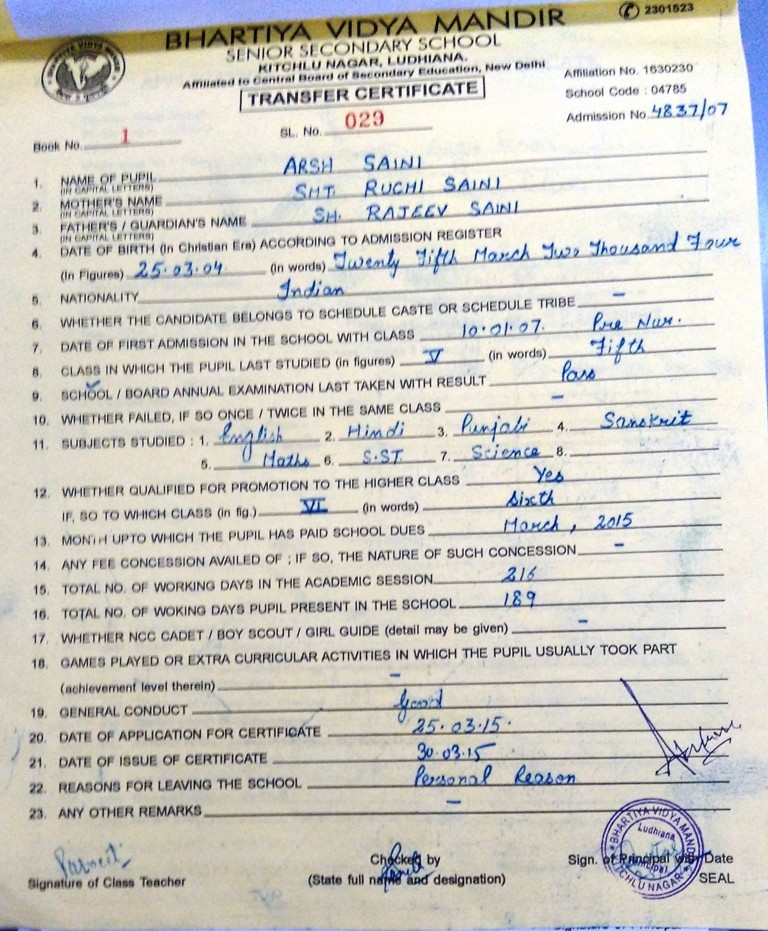 BHARTIYA VIDYA MANDIR
2301523
SENIOR SECONDARY SCHOOL
KITCHLU NAGAR, LUDHIANA.
Affiliated to Central Board of Secondary Education, New Delhi
Affiliation No. 1630230
TRANSFER CERTIFICATE
School Code : 04785
Admission No. 4837/07
Book No. 1 SL. No. 029
1. NAME OF PUPIL ARSH SAINI
(IN CAPITAL LETTERS)
2. MOTHER'S NAME SMT. RUCHI SAINI
(IN CAPITAL LETTERS)
3. FATHER'S / GUARDIAN'S NAME SH. RAJEEV SAINI
(IN CAPITAL LETTERS)
4. DATE OF BIRTH (In Christian Era) ACCORDING TO ADMISSION REGISTER
(In Figures) 25.03.04 (in words) Twenty Fifth March Two Thousand Four
5. NATIONALITY Indian
6. WHETHER THE CANDIDATE BELONGS TO SCHEDULE CASTE OR SCHEDULE TRIBE –
7. DATE OF FIRST ADMISSION IN THE SCHOOL WITH CLASS 10.01.07. Pre Nur.
8. CLASS IN WHICH THE PUPIL LAST STUDIED (in figures) V (in words) Fifth
9. SCHOOL / BOARD ANNUAL EXAMINATION LAST TAKEN WITH RESULT Pass
10. WHETHER FAILED, IF SO ONCE / TWICE IN THE SAME CLASS –
11. SUBJECTS STUDIED : 1. English 2. Hindi 3. Punjabi 4. Sanskrit
5. Maths 6. S.ST 7. Science 8.
12. WHETHER QUALIFIED FOR PROMOTION TO THE HIGHER CLASS Yes
IF, SO TO WHICH CLASS (in fig.) VI (in words) Sixth
13. MONTH UPTO WHICH THE PUPIL HAS PAID SCHOOL DUES March, 2015
14. ANY FEE CONCESSION AVAILED OF ; IF SO, THE NATURE OF SUCH CONCESSION –
15. TOTAL NO. OF WORKING DAYS IN THE ACADEMIC SESSION 216
16. TOTAL NO. OF WOKING DAYS PUPIL PRESENT IN THE SCHOOL 189
17. WHETHER NCC CADET / BOY SCOUT / GIRL GUIDE (detail may be given) –
18. GAMES PLAYED OR EXTRA CURRICULAR ACTIVITIES IN WHICH THE PUPIL USUALLY TOOK PART
(achievement level therein) –
19. GENERAL CONDUCT Good
20. DATE OF APPLICATION FOR CERTIFICATE 25.03.15.
21. DATE OF ISSUE OF CERTIFICATE 30.03.15
22. REASONS FOR LEAVING THE SCHOOL Personal Reason
23. ANY OTHER REMARKS –
BHARTIYA VIDYA MANDIR
Ludhiana
Principal
KITCHLU NAGAR
Signature of Class Teacher
Checked by
(State full name and designation)
Sign. of Principal with Date
SEAL